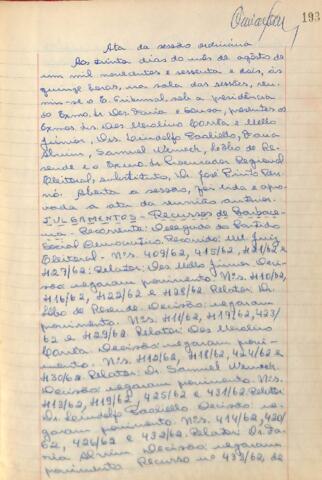 193
Ata da sessão ordinária
Aos trinta dias do mês de agôsto de
um mil novecentos e sessenta e dois, às
quinze horas, na sala das sessões, reu-
niu-se o E. Tribunal sob a presidência
do Exmo. Sr. Des. Faria e Sousa, presentes os
Exmos. Srs. Des. Merolino Corrêa e Mello
Júnior, Drs. Lindolfo Paoliello, Faria
Alvim, Samuel Werneck, Hélbo de Re-
sende e o Exmo. Sr. Procurador Regional
Eleitoral, substituto, Dr. José
Aberta a sessão, foi lida e apro-
vada a ata da reunião anterior.
JULGAMENTOS - Recursos de Barbace-
na - Recorrente: Delegado do Partido
Social Democrático. Recorrido: MM. Juiz
Eleitoral - Nºs. 409/62, 415/62, 421/62 e
427/62: Relator: Des. Mello Júnior. Deci-
são: negaram provimento. Nºs. 410/62,
416/62, 422/62 e 428/62. Relator: Dr.
Hélbo de Resende. Decisão: negaram
provimento. Nºs. 411/62, 417/62, 423/
62 e 429/62. Relator: Des. Merolino
Corrêa. Decisão: negaram provi-
mento. Nºs. 412/62, 418/62, 424/62 e
430/62. Relator: Dr. Samuel Werneck.
Decisão: negaram provimento. Nºs.
413/62, 419/62, 425/62 e 431/62. Relator:
Dr. Lindolfo Paoliello. Decisão: ne-
garam provimento. Nºs. 414/62, 420/
62, 426/62 e 432/62. Relator: Dr. Fa-
ria Alvim. Decisão: negaram
provimento. Recurso nº 433/62, de